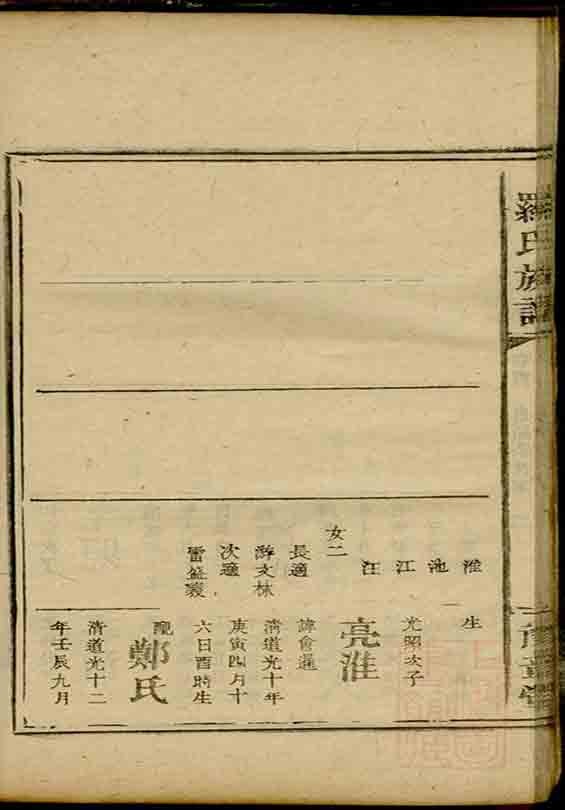 羅氏族譜
淮
池
江
汪
女二
長適
游文林
次適
雷益
生
光照次子
亮淮
諱會暹
清道光十年
庚寅四月十
六日酉時生
配鄭氏
清道光十二
年壬辰九月